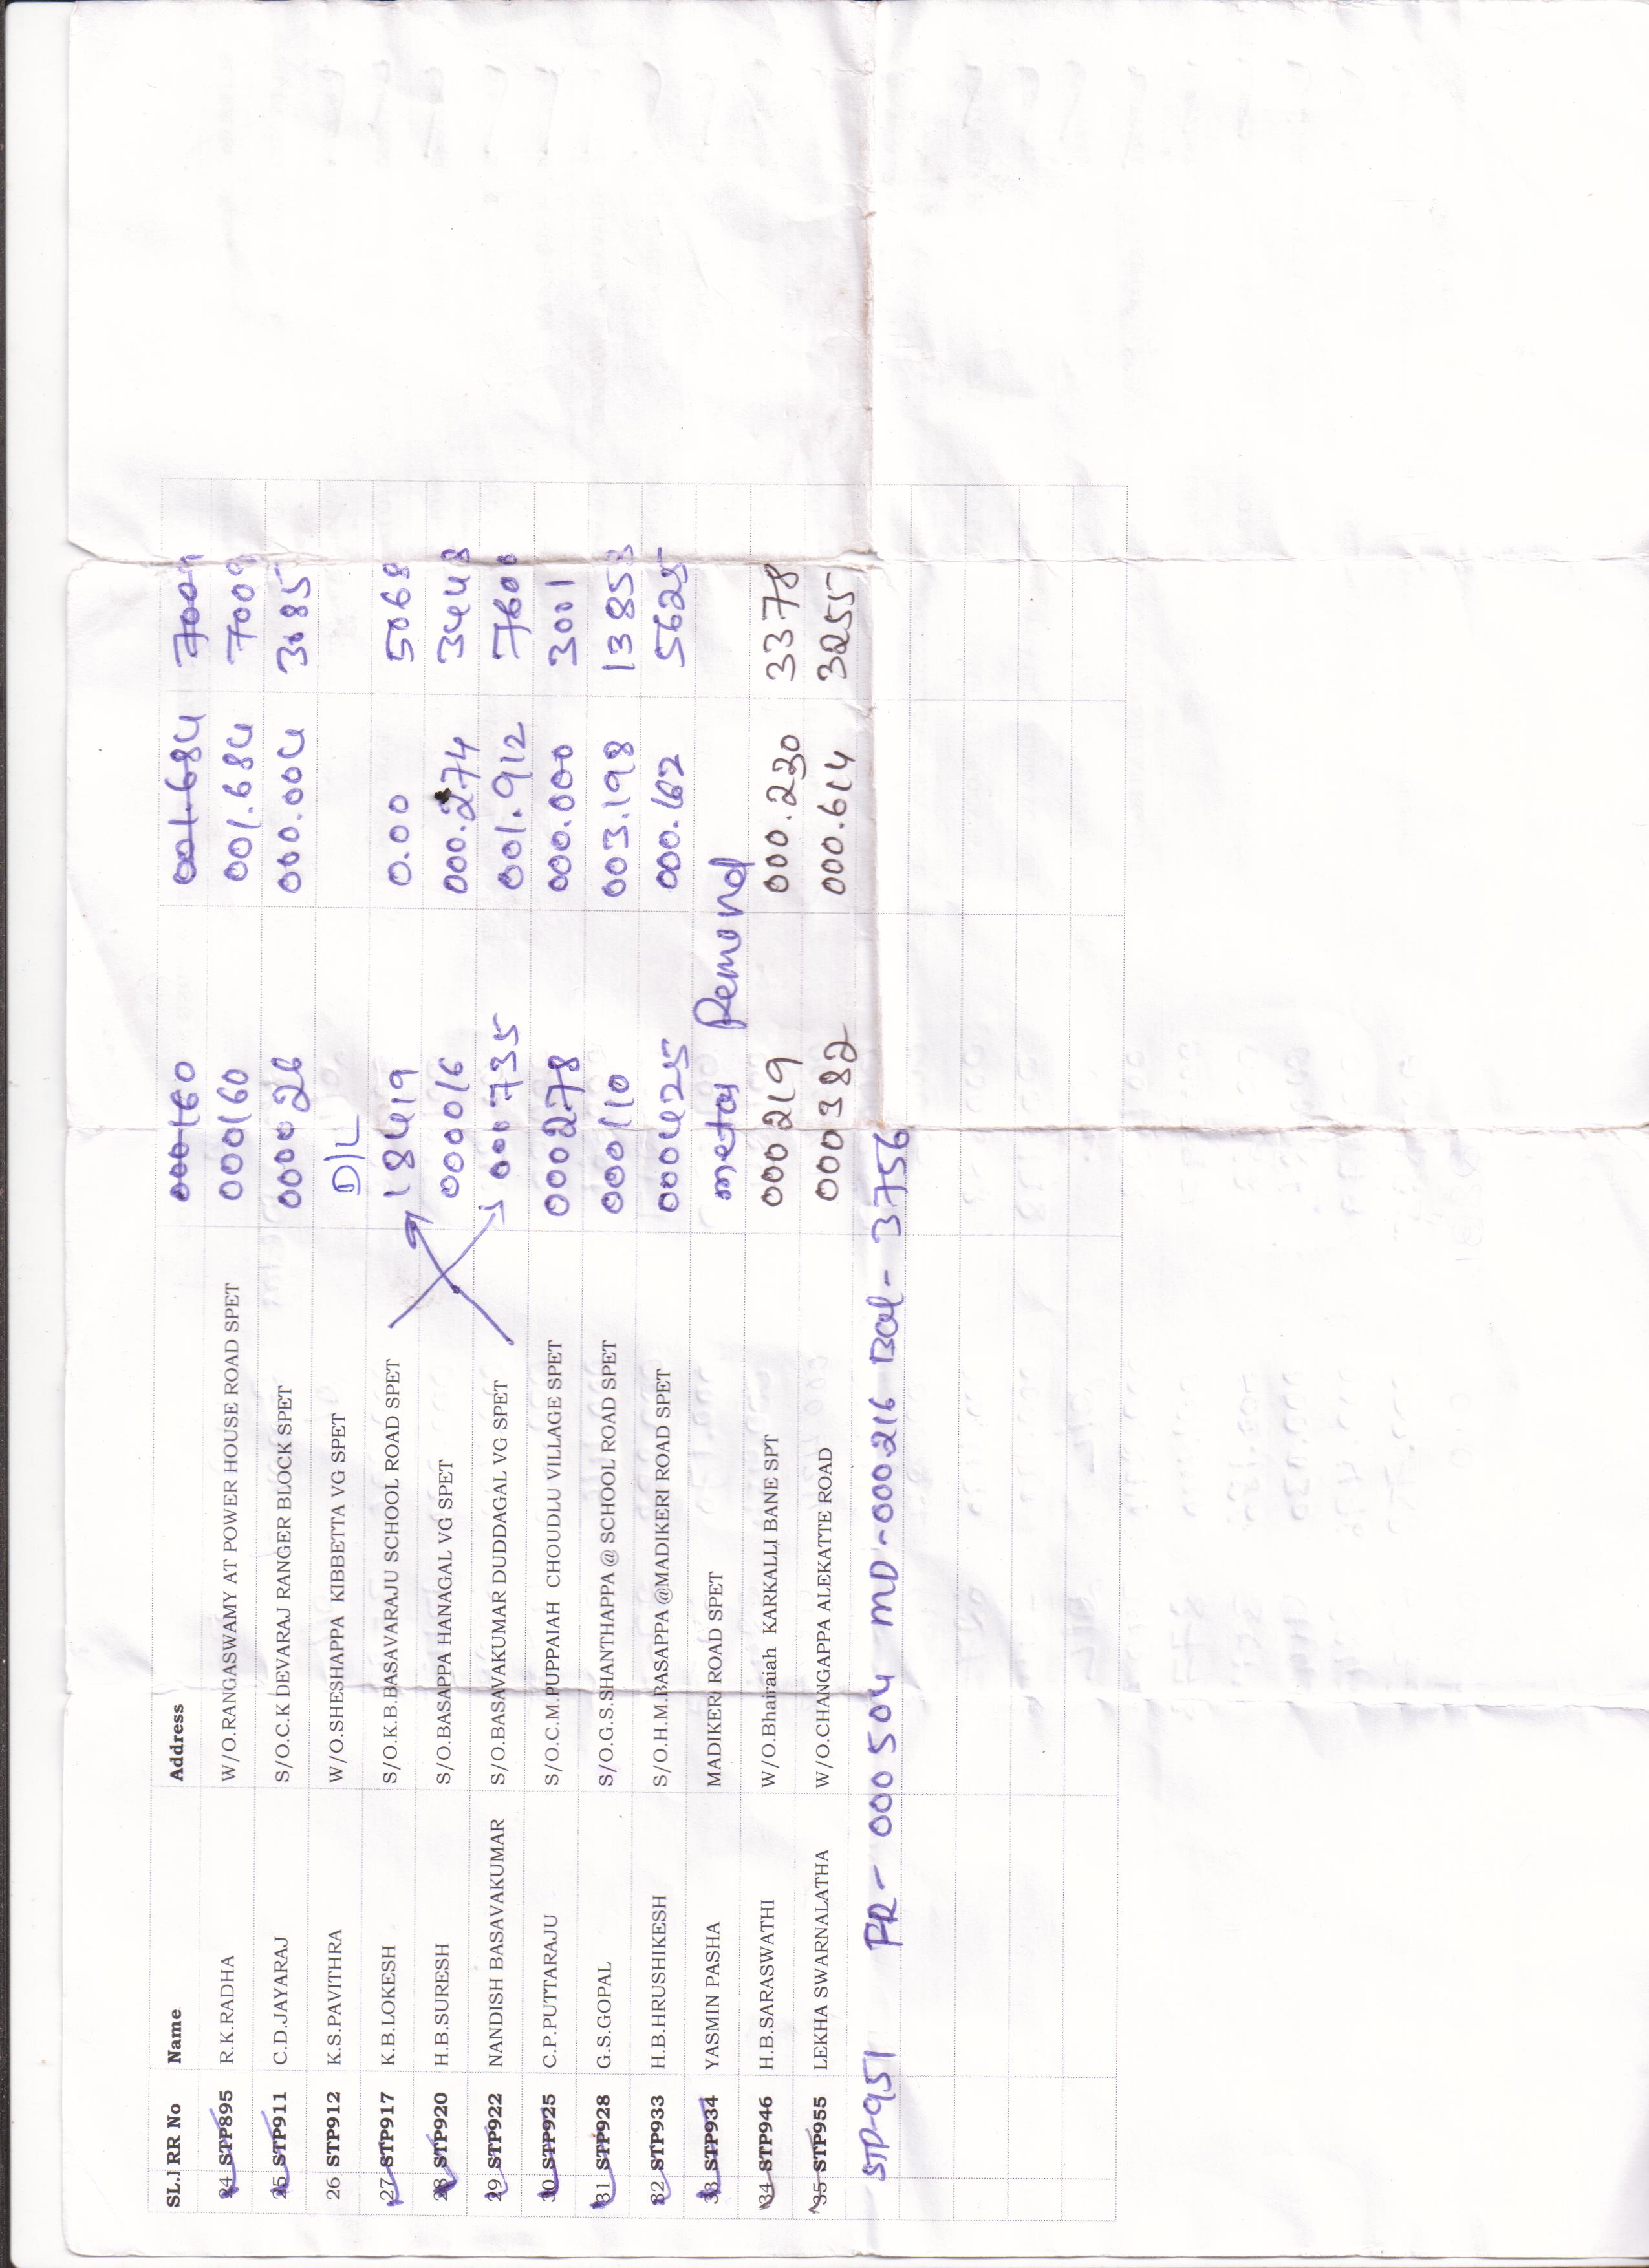 SL.] RR No Name Address 000160 001.684 7009
24 STP895 R.K.RADHA W/O.RANGASWAMY AT POWER HOUSE ROAD SPET 000160 001.684 7009
25 STP911 C.D.JAYARAJ S/O.C.K DEVARAJ RANGER BLOCK SPET 000026 000.004 3085
26 STP912 K.S.PAVITHRA W/O.SHESHAPPA KIBBETTA VG SPET D/L
27 STP917 K.B.LOKESH S/O.K.B.BASAVARAJU SCHOOL ROAD SPET 18419 0.00 5068
28 STP920 H.B.SURESH S/O.BASAPPA HANAGAL VG SPET 000016 000.274 3448
29 STP922 NANDISH BASAVAKUMAR S/O.BASAVAKUMAR DUDDAGAL VG SPET 000735 001.912 7600
30 STP925 C.P.PUTTARAJU S/O.C.M.PUPPAIAH CHOUDLU VILLAGE SPET 000278 000.000 3001
31 STP928 G.S.GOPAL S/O.G.S.SHANTHAPPA @ SCHOOL ROAD SPET 000110 003.198 13853
32 STP933 H.B.HRUSHIKESH S/O.H.M.BASAPPA @MADIKERI ROAD SPET 000425 000.162 5625
33 STP934 YASMIN PASHA MADIKERI ROAD SPET
34 STP946 H.B.SARASWATHI W/O.Bhairaiah KARKALLI BANE SPT 000219 000.230 3378
35 STP955 LEKHA SWARNALATHA W/O.CHANGAPPA ALEKATTE ROAD 000382 000.614 3255
STP-951 PR- 000504 MD-000216 Bal- 3756